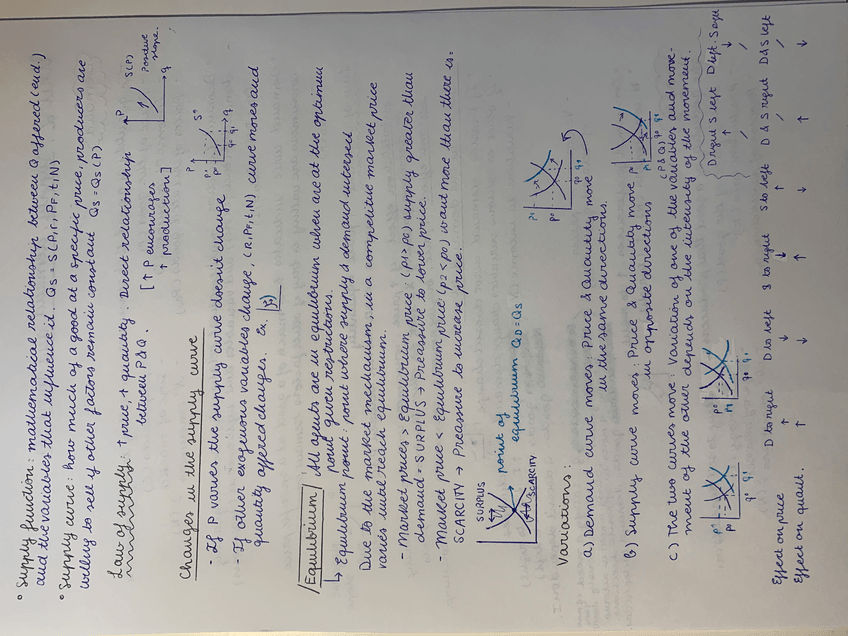 • Supply function: mathematical relationship between Q offered (end.)
and the variables that influence it. Qs = S(P, r, PF, t, N)
• Supply curve: how much of a good at a specific price, producers are
willing to sell if other factors remain constant Qs = Qs (P)
Law of supply: ↑ price, ↑ quantity. Direct relationship
between P & Q.
[↑ P encourages
↑ production]
P
S(P)
Positive slope.
q
Changes in the supply curve
- If P varies the supply curve doesn't change
- If other exogenous variables change, (r, PF, t, N), curve moves and
quantity offered changes. Ex.
P
S°
q
/Equilibrium/ All agents are in equilibrium when are at the optimum
point given restrictions.
↳ Equilibrium point: point where supply & demand intersect
Due to the market mechanism, in a competitive market price
varies until reach equilibrium.
- Market prices > Equilibrium price (p1 > pe) supply greater than
demand = SURPLUS → Preassure to lower price.
- Market price < Equilibrium price (p2 < pe) want more than there is =
SCARCITY → Preassure to increase price.
SURPLUS
point of
equilibrium QD = QS
SCARCITY
Variations:
a) Demand curve moves: Price & Quantity move
in the same directions.
b) Supply curve moves: Price & Quantity move
in opposite directions (P & Q)
c) The two curves move: Variation of one of the variables and move-
ment of the other depends on the intensity of the movement.
D to right D to left S to right S to left D & S right D & S left
D right S left D left S right
Effect on price ↑ ↓ ↓ ↑ / / ↑ ↓
Effect on quant. ↑ ↓ ↑ ↓ ↑ ↓ / /